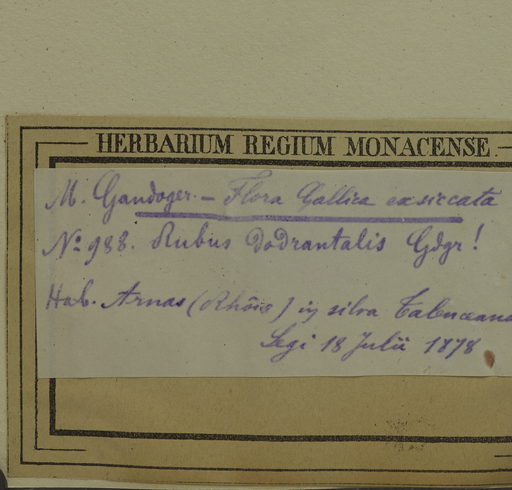 HERBARIUM REGIUM MONACENSE.
M. Gandoger. — Flora Gallica exsiccata
No 988. Rubus dodrantalis Gdgr!
Hab. Arnas (Rhône) in silva
Legi 18 Julii 1878